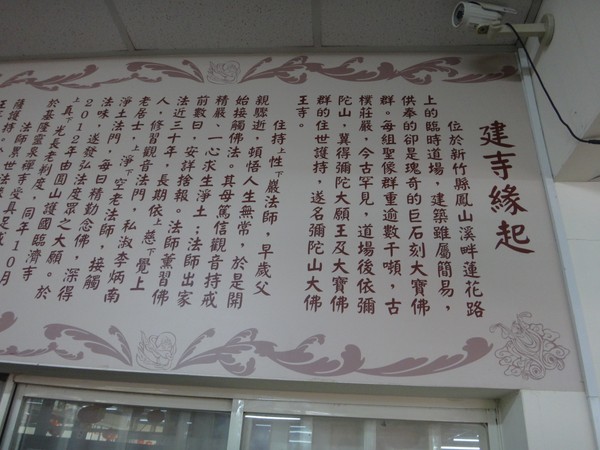 建寺緣起
位於新竹縣鳳山溪畔蓮花路
上的臨時道場，建築雖屬簡易，
供奉的卻是瑰奇的巨石刻大寶佛
群。每組聖像群重逾數千噸，古
樸莊嚴，今古罕見，道場後依彌
陀山，冀得彌陀大願王及大寶佛
群的住世護持，遂名彌陀山大佛
王寺。
住持上性下嚴法師，早歲父
親驟逝，頓悟人生無常，於是開
始接觸佛法。其母篤信觀音持戒
精嚴，一心求生淨土；法師出家
前數日，安詳捨報。法師薰習佛
法近三十年，長期依上慈下覺上
人，修習觀音法門，私淑李炳南
老居士，上淨下空老法師，接觸
淨土法門，每日精勤念佛，深得
法味，遂發弘法度眾之大願。於
2012年由圓山護國臨濟寺
上真下光長老剃度，同年10月
於基隆靈泉禪寺受具足戒
薩護持，法師累世法